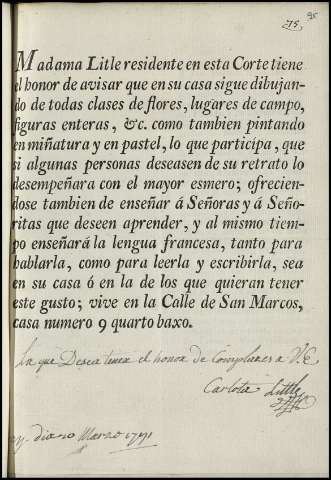 95
75
Madama Litle residente en esta Corte tiene
el honor de avisar que en su casa sigue dibujan-
do de todas clases de flores, lugares de campo,
figuras enteras, &c. como tambien pintando
en miñatura y en pastel, lo que participa, que
si algunas personas deseasen de su retrato lo
desempeñara con el mayor esmero; ofrecien-
dose tambien de enseñar á Señoras y á Seño-
ritas que deseen aprender, y al mismo tiem-
po enseñará la lengua francesa, tanto para
hablarla, como para leerla y escribirla, sea
en su casa ó en la de los que quieran tener
este gusto; vive en la Calle de San Marcos,
casa numero 9 quarto baxo.
La que Desea tener el honor de Complaser a V.E
Carlota Little
diario Marzo 1791